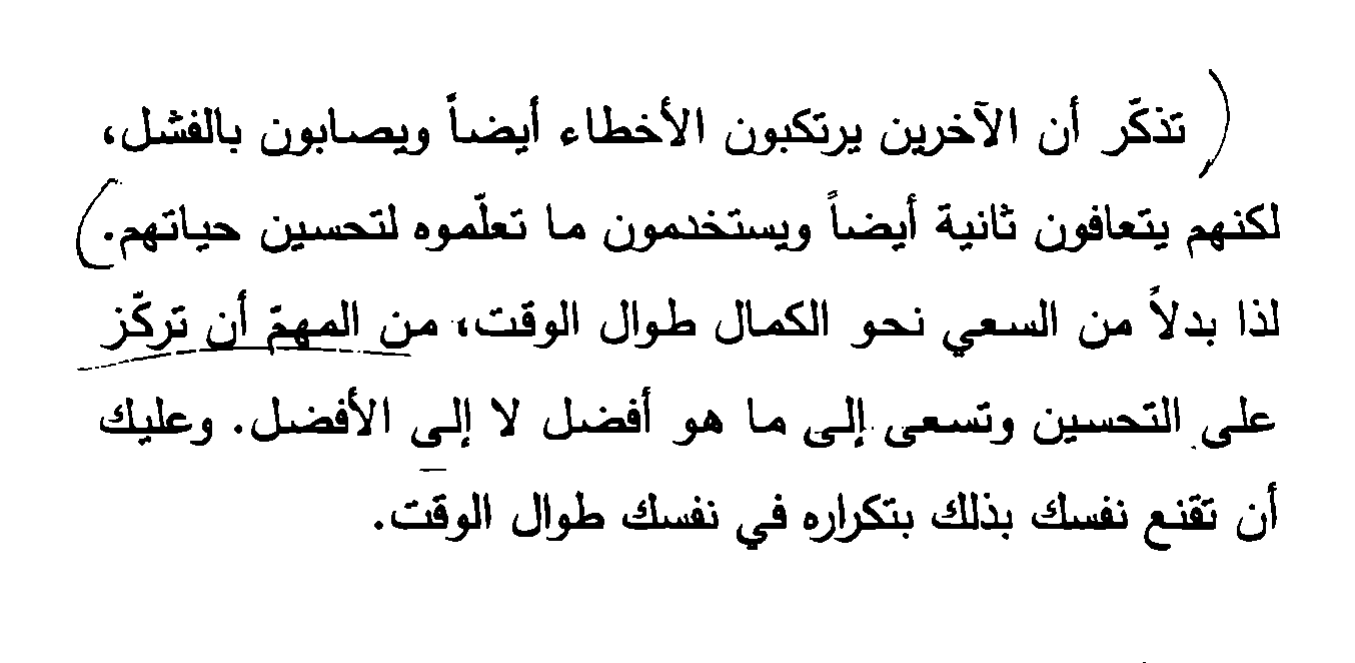 تذكّر أن الآخرين يرتكبون الأخطاء أيضاً ويصابون بالفشل،
لكنهم يتعافون ثانية أيضاً ويستخدمون ما تعلّموه لتحسين حياتهم.
لذا بدلاً من السعي نحو الكمال طوال الوقت، من المهمّ أن تركّز
على التحسين وتسعى إلى ما هو أفضل لا إلى الأفضل. وعليك
أن تقنع نفسك بذلك بتكراره في نفسك طوال الوقت.